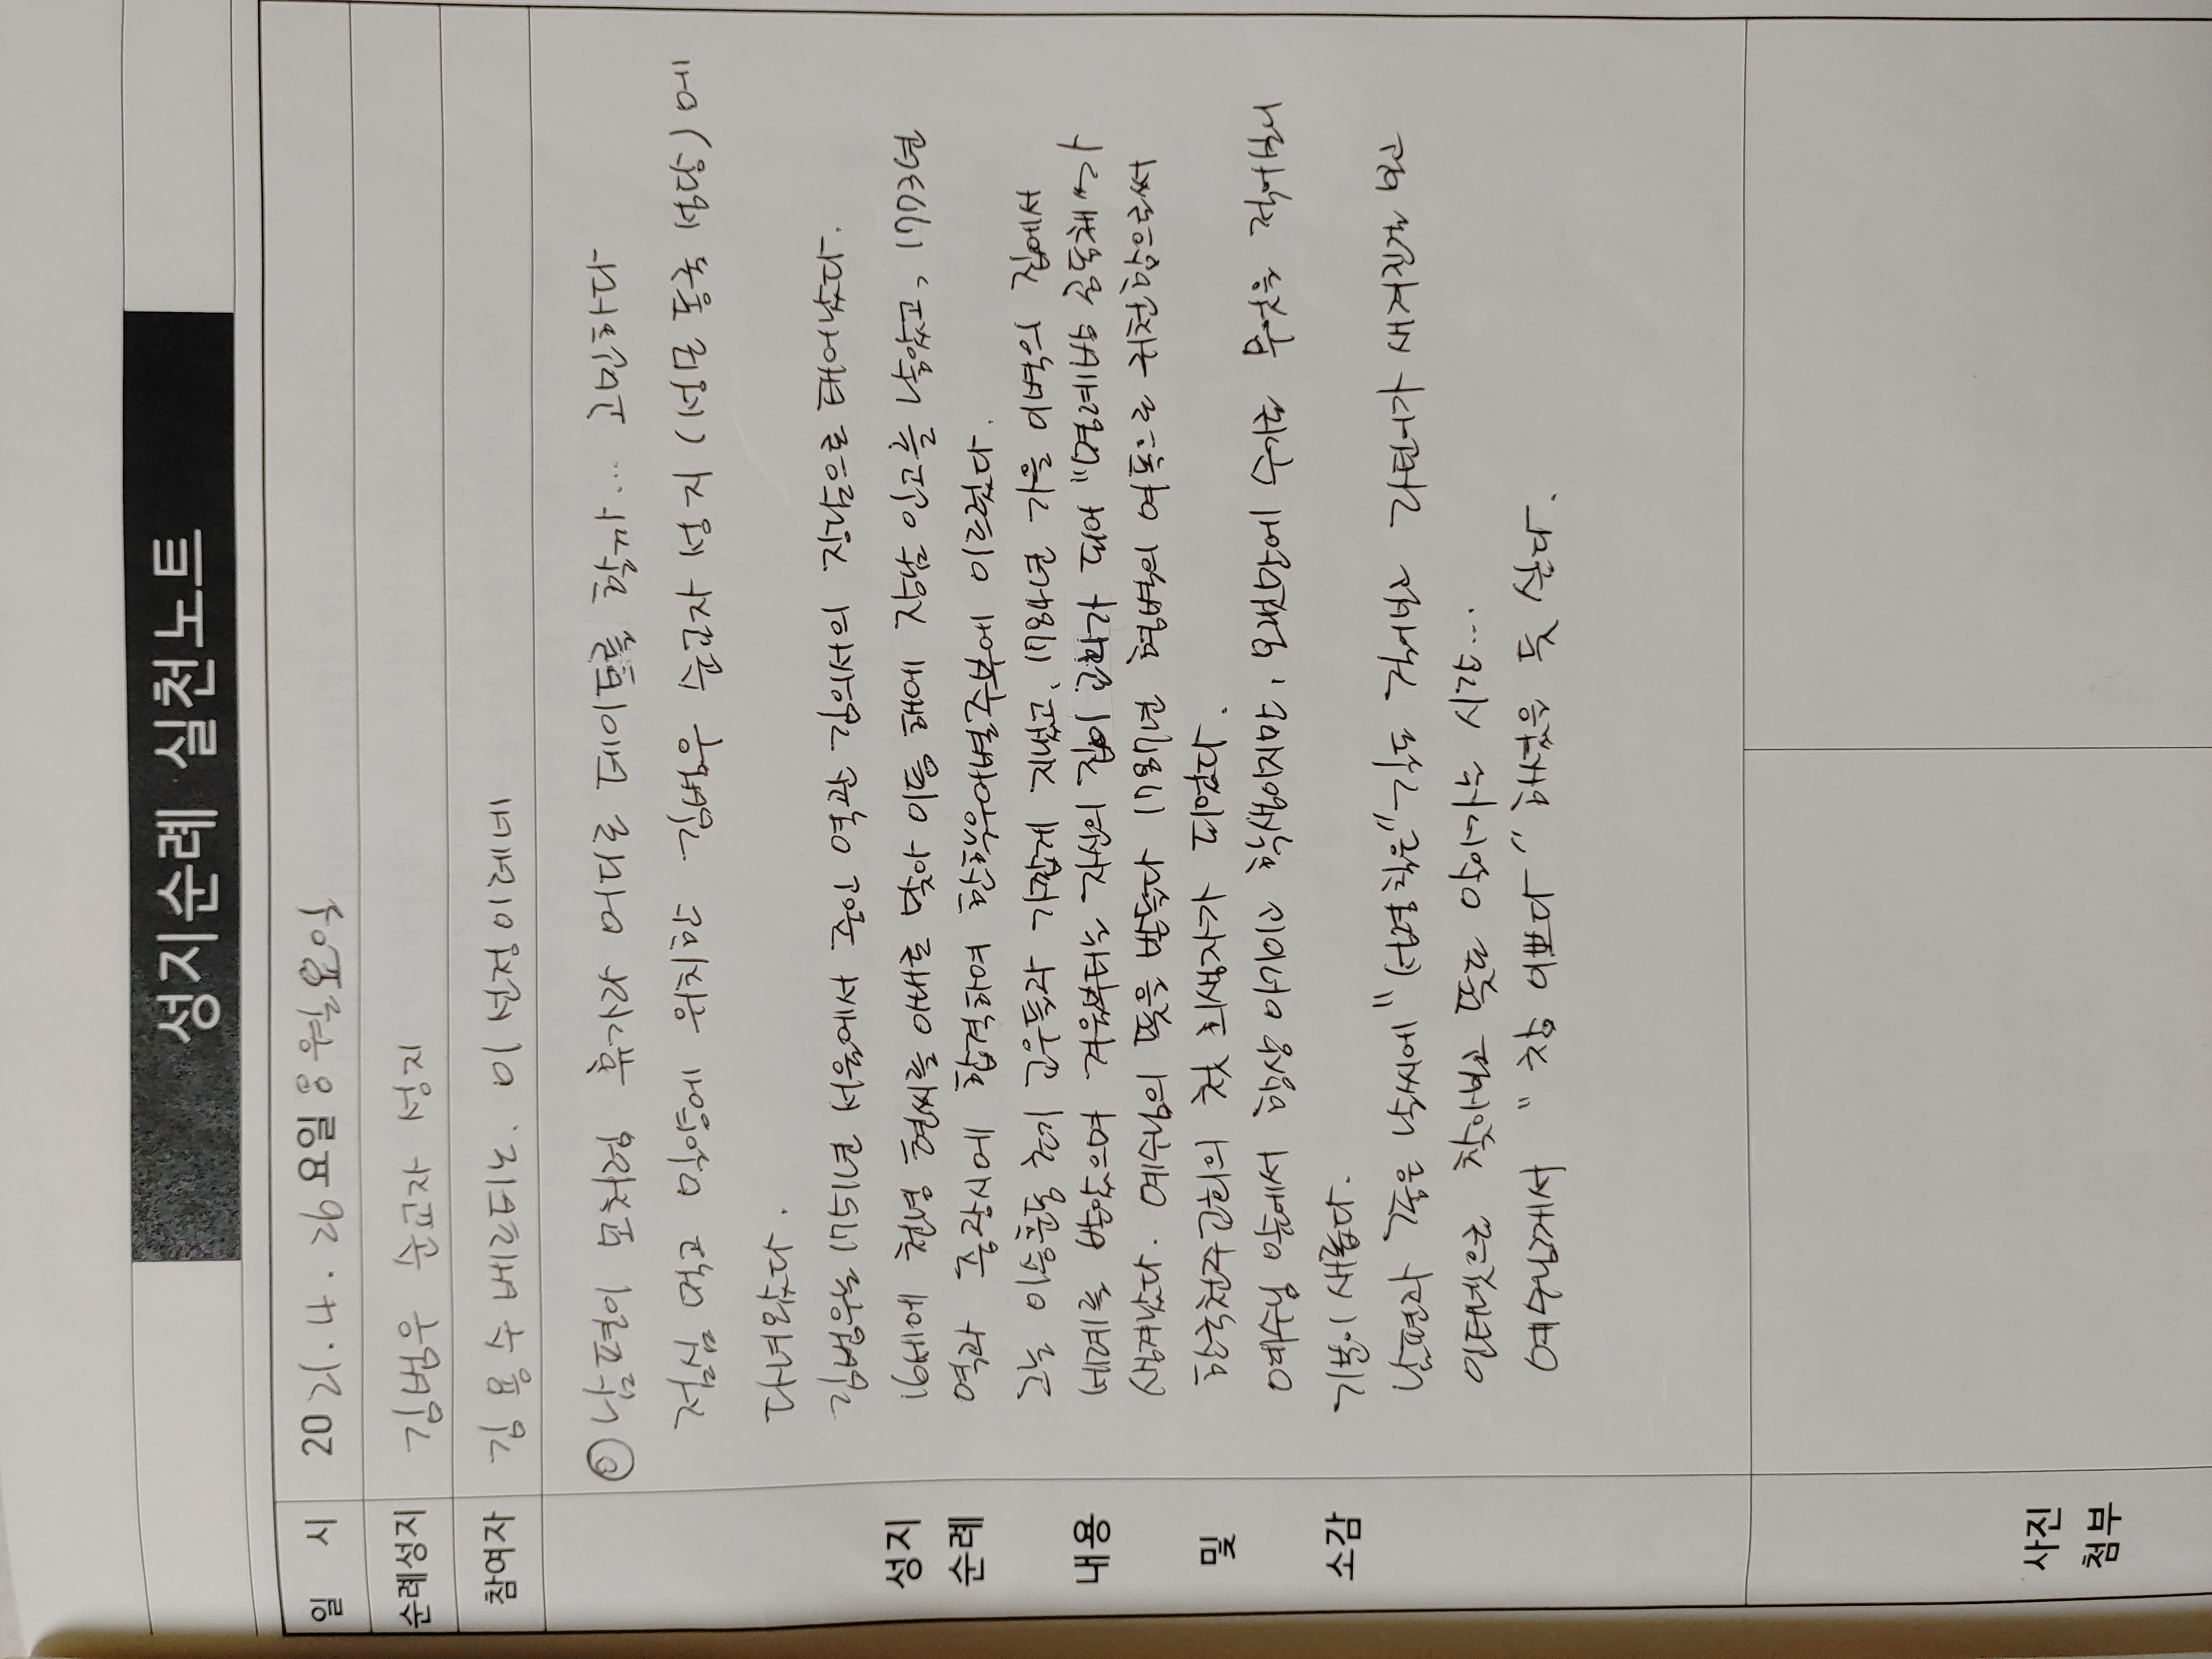 성지순례 실천노트
일 시 2021. 4. 26 요일 월요일
순례성지 김범우 순교자 성지
참여자 김용수베르티노. 이선정이레네
남편이 모처럼 휴가라 어디로 데이트를 할까... 고민하다
점심 먹고 밀양에 위치한 김범우 순교자 성지 (성모동굴성당)에
다녀왔다.
김범우는 1751년 서울에서 중인 역관 김의서의 장남으로 태어났다.
16세에 천녕 현씨를 아내로 맞아 이듬 해에 장남 인고를 낳았고, 1773년
역과 증광시에 합격하여 한학우어별주부에 이르렀다.
그는 이승훈등 초기 교우들과 가깝게 지냈고, 1784년 가을 이벽의 집에서
세례를 받았으며 겨울부터는 자신의 집이 교회가 되어 "명례방 공동체"가
생겨났다. 예수님의 뜻을 받들다 1787년 형벌의 여독으로 귀천함으로써
한국천주교회의 첫 희생자가 되었다.
예수님 앞에서 항상 아기이고 학생이지만, 오랫만에 수기로 무엇을 적어보니
기분이 새롭다.
남편과 좋은 날씨에 길도 걸어보고 라틴어가 새겨진걸 보고
인터넷으로 찾아보고 뜻도 알아가는 시간...
예수님께서 "참 이쁘다" 하셨을 듯 싶다.
성지
순례
내용
및
소감
사진
첨부